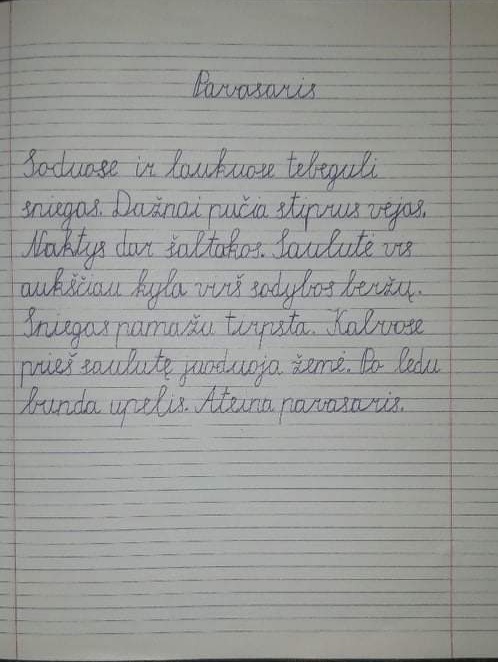 Pavasaris
Soduose ir laukuose tebeguli
sniegas. Dažnai pučia stiprus vėjas.
Naktys dar šaltokos. Saulutė vis
aukščiau kyla virš sodybos beržų.
Sniegas pamažu tirpsta. Kalvose
prieš saulutę juoduoja žemė. Po ledu
bunda upelis. Ateina pavasaris.